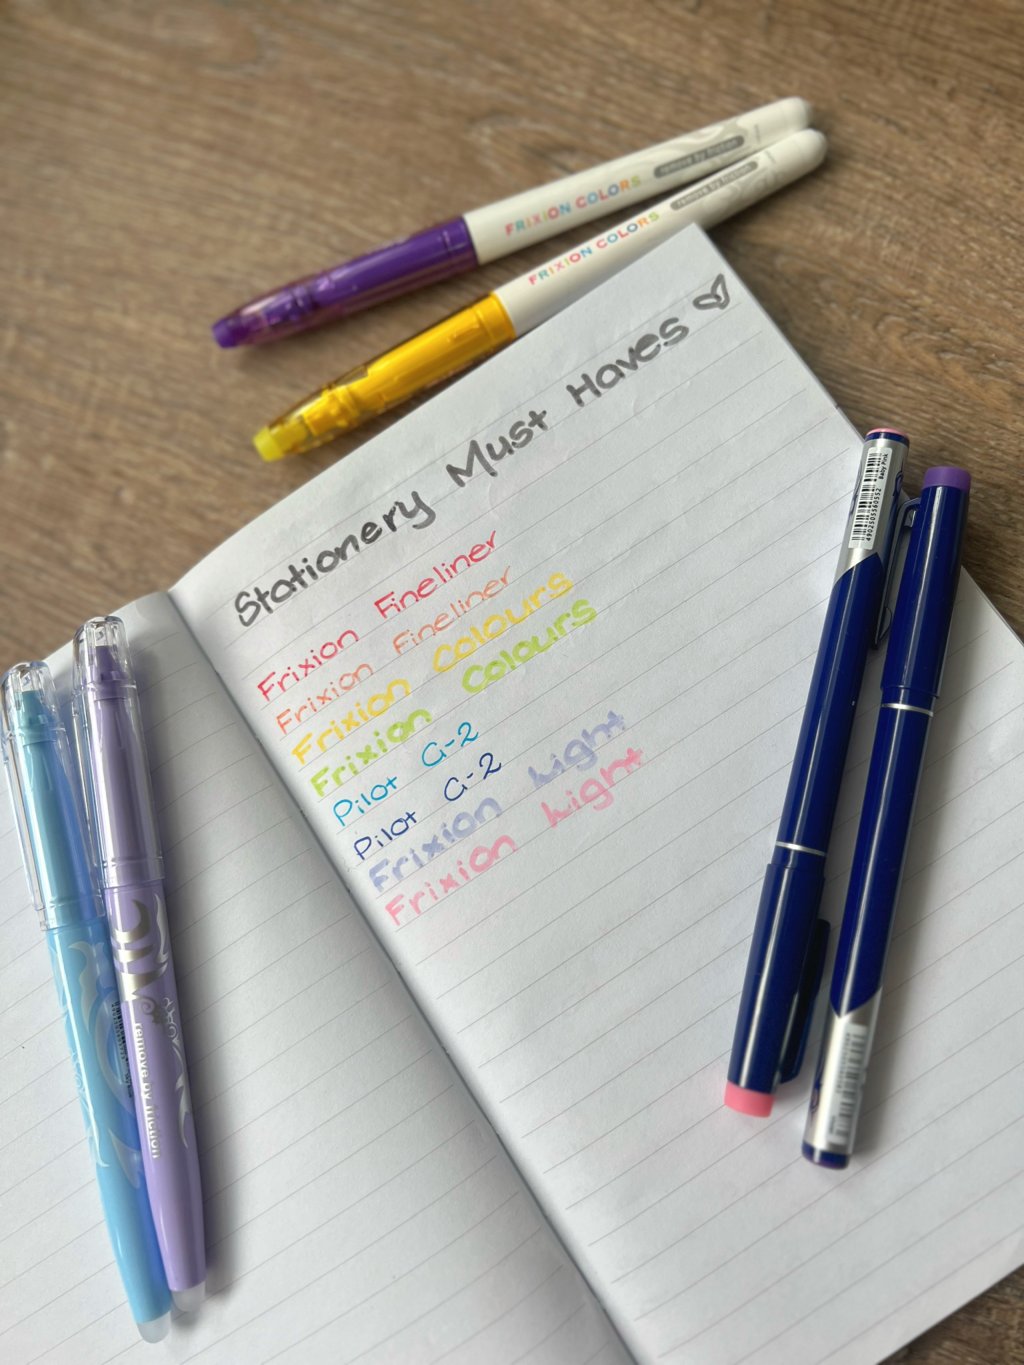 FRIXION COLORS remove by friction
FRIXION COLORS remove by friction
Stationery Must Haves
Frixion Fineliner
Frixion Fineliner
Frixion Colours
Frixion Colours
Pilot G-2
Pilot G-2
Frixion Light
Frixion Light
remove by friction
Baby Pink
4902505560552